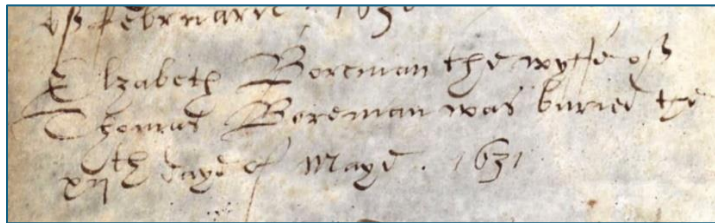 of februarie . 163
Elzabeth Boreman the wyffe of
Thomas Boreman was buried the
xijth daye of Maye . 1631